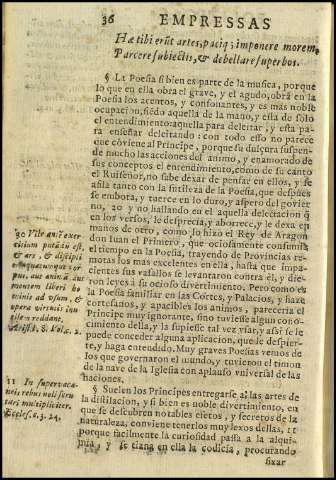 36 EMPRESSAS
Hæ tibi erũt artes, paciq; imponere morem,
Parcere subiectis, & debellare superbos.
§ La Poesia si bien es parte de la musica, porque
lo que en ella obra el grave, y el agudo, obrã en la
Poesia los acentos, y consonantes, y es mas noble
ocupaciõ, siẽdo aquella de la mano, y esta de solo
el entendimiento: aquella para deleitar, y esta pa-
ra enseñar deleitando: con todo esso no parece
que cõviene al Principe, porque su dulçura suspen-
de mucho las acciones del animo, y enamorado de
sus conceptos el entendimiento, como de su canto
el Ruiseñor, no sabe dexar de pensar en ellos, y se
afila tanto con la sutileza de la Poesia, que despues
se embota, y tuerce en lo duro, y aspero del govier
no, 30 y no hallando en el aquella delectacion q̃
en los versos, le desprecia, y aborrece, y le dexa en
manos de otro, como lo hizo el Rey de Aragon
don Iuan el Primero, que ociosamente consumia
el tiempo en la Poesia, trayendo de Provincias re-
motas los mas excelentes en ella, hasta que impa-
cientes sus vassallos se levantaron contra êl, y die-
ron leyes à su ocioso divertimiento. Pero como es
la Poesia familiar en las Cortes, y Palacios, y haze
cortesanos, y apacibles los animos, pareceria el
Principe muy ignorante, sino tuviesse algun cono-
cimiento della, y la supiesse tal vez vsar, y assi se le
puede conceder alguna aplicacion, que le despier-
te, y haga entendido. Muy graves Poesias vemos de
los que governaron el mundo, y tuvieron el timon
de la nave de la Iglesia con aplauso vniversal de las
naciones.
§ Suelen los Principes entregarse a las artes de
la distilacion, y si bien es noble divertimiento, en
que se descubren notables efetos, y secretos de la
naturaleza, conviene tenerlos muy lexos dellas,
porque facilmente la curiosidad passa a la alqui-
mia, y se tiana en ella la codicia, procurando
fixar
30 Vile autẽ exer
citium putãdũ est,
& ars, & disciplina
quæcunque cor-
pus, aut animũ, aut
mentem liberi ho
minis ad vsum, &
opera virtutis inu
tilem reddunt.
Arist. 8. Pol. c. 2.
31 In supervaca-
neis rebus noli scru
tari multipliciter.
Eccles. c. 3. 24.